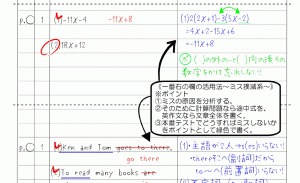 P.○
(1)-11x-4
-11x+8
(1)2(2x+1)-3(5x-2)
=4x+2-15x+6
=-11x+8
(3)18x+12
※( )の外の-と( )内の後ろの
数字をかけ忘れない!
(一番右の欄の活用法~ミス撲滅系~)
※ポイント
①ミスの原因を分析する。
②そのために計算問題なら途中式を、
英作文なら文章全体を書く。
③本番テストでどうすればミスしないか
をポイントとして緑色で書く。
P.○
Ken and Tom goes to there.
go there
(1)・主語が2人→s(es)いらない!
・thereはそこへ(副詞)だから
to~へ(前置詞)いらない!
To read many books are